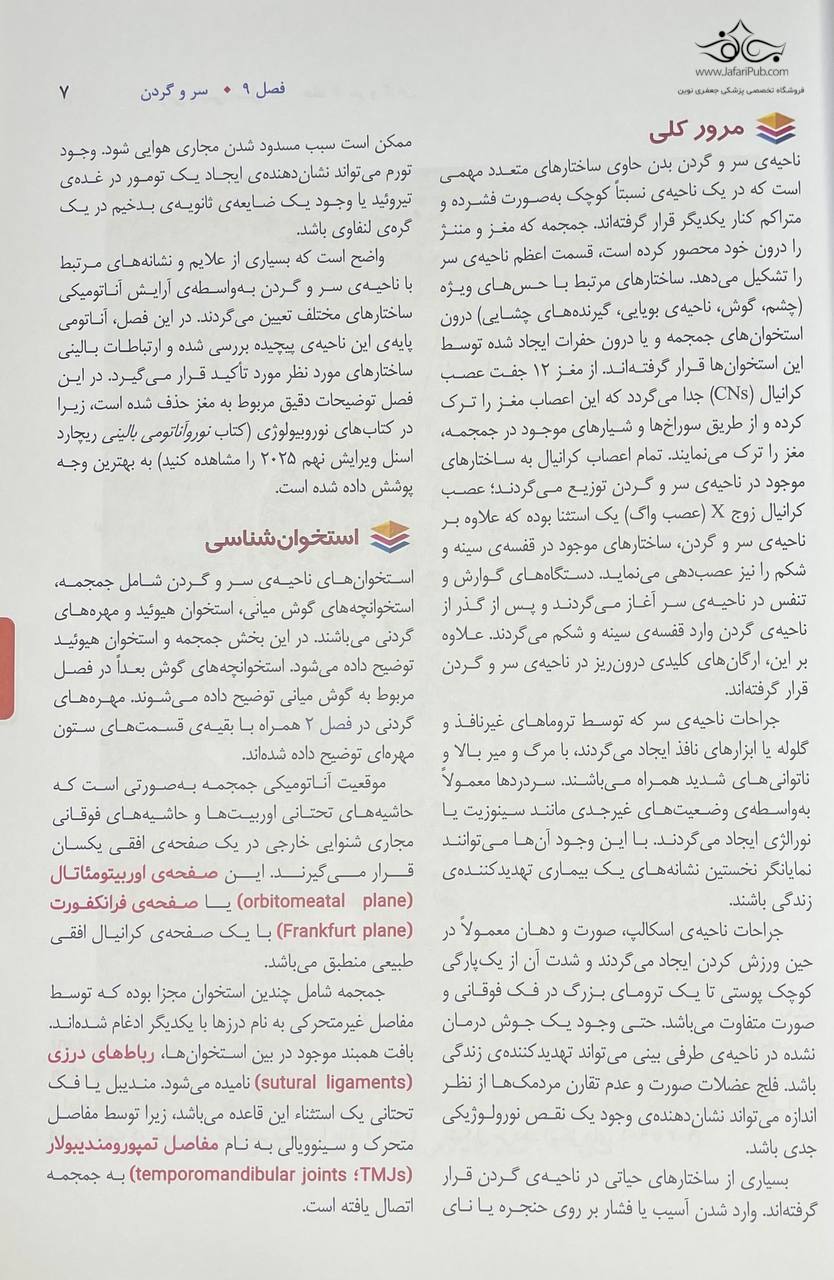 بهاف
www.JafariPub.com
فروشگاه تخصصی پزشکی جعفری نوین
فصل ۹ • سر و گردن
۷
مرور کلی
ناحیه‌ی سر و گردن بدن حاوی ساختارهای متعدد مهمی
است که در یک ناحیه‌ی نسبتاً کوچک به‌صورت فشرده و
متراکم کنار یکدیگر قرار گرفته‌اند. جمجمه که مغز و مننژ
را درون خود محصور کرده است، قسمت اعظم ناحیه‌ی سر
را تشکیل می‌دهد. ساختارهای مرتبط با حس‌های ویژه
(چشم، گوش، ناحیه‌ی بویایی، گیرنده‌های چشایی) درون
استخوان‌های جمجمه و یا درون حفرات ایجاد شده توسط
این استخوان‌ها قرار گرفته‌اند. از مغز ۱۲ جفت عصب
کرانیال (CNs) جدا می‌گردد که این اعصاب مغز را ترک
کرده و از طریق سوراخ‌ها و شیارهای موجود در جمجمه،
مغز را ترک می‌نمایند. تمام اعصاب کرانیال به ساختارهای
موجود در ناحیه‌ی سر و گردن توزیع می‌گردند؛ عصب
کرانیال زوج X (عصب واگ) یک استثنا بوده که علاوه بر
ناحیه‌ی سر و گردن، ساختارهای موجود در قفسه‌ی سینه و
شکم را نیز عصب‌دهی می‌نماید. دستگاه‌های گوارش و
تنفس در ناحیه‌ی سر آغاز می‌گردند و پس از گذر از
ناحیه‌ی گردن وارد قفسه‌ی سینه و شکم می‌گردند. علاوه
بر این، ارگان‌های کلیدی درون‌ریز در ناحیه‌ی سر و گردن
قرار گرفته‌اند.
جراحات ناحیه‌ی سر که توسط تروماهای غیرنافذ و
گلوله یا ابزارهای نافذ ایجاد می‌گردند، با مرگ و میر بالا و
ناتوانی‌های شدید همراه می‌باشند. سردردها معمولاً
به‌واسطه‌ی وضعیت‌های غیرجدی مانند سینوزیت یا
نورالژی ایجاد می‌گردند. با این وجود آن‌ها می‌توانند
نمایانگر نخستین نشانه‌های یک بیماری تهدیدکننده‌ی
زندگی باشند.
جراحات ناحیه‌ی اسکالپ، صورت و دهان معمولاً در
حین ورزش کردن ایجاد می‌گردند و شدت آن از یک‌پارگی
کوچک پوستی تا یک ترومای بزرگ در فک فوقانی و
صورت متفاوت می‌باشد. حتی وجود یک جوش درمان
نشده در ناحیه‌ی طرفی بینی می‌تواند تهدیدکننده‌ی زندگی
باشد. فلج عضلات صورت و عدم تقارن مردمک‌ها از نظر
اندازه می‌تواند نشان‌دهنده‌ی وجود یک نقص نورولوژیکی
جدی باشد.
بسیاری از ساختارهای حیاتی در ناحیه‌ی گردن قرار
گرفته‌اند. وارد شدن آسیب یا فشار بر روی حنجره یا نای
ممکن است سبب مسدود شدن مجاری هوایی شود. وجود
تورم می‌تواند نشان‌دهنده‌ی ایجاد یک تومور در غده‌ی
تیروئید یا وجود یک ضایعه‌ی ثانویه‌ی بدخیم در یک
گره‌ی لنفاوی باشد.
واضح است که بسیاری از علایم و نشانه‌های مرتبط
با ناحیه‌ی سر و گردن به‌واسطه‌ی آرایش آناتومیکی
ساختارهای مختلف تعیین می‌گردند. در این فصل، آناتومی
پایه‌ی این ناحیه‌ی پیچیده بررسی شده و ارتباطات بالینی
ساختارهای مورد نظر مورد تأکید قرار می‌گیرد. در این
فصل توضیحات دقیق مربوط به مغز حذف شده است، زیرا
در کتاب‌های نوروبیولوژی (کتاب نوروآناتومی بالینی ریچارد
اسنل ویرایش نهم ۲۰۲۵ را مشاهده کنید) به بهترین وجه
پوشش داده شده است.
استخوان‌شناسی
استخوان‌های ناحیه‌ی سر و گردن شامل جمجمه،
استخوانچه‌های گوش میانی، استخوان هیوئید و مهره‌های
گردنی می‌باشند. در این بخش جمجمه و استخوان هیوئید
توضیح داده می‌شود. استخوانچه‌های گوش بعداً در فصل
مربوط به گوش میانی توضیح داده می‌شوند. مهره‌های
گردنی در فصل ۲ همراه با بقیه‌ی قسمت‌های ستون
مهره‌ای توضیح داده شده‌اند.
موقعیت آناتومیکی جمجمه به‌صورتی است که
حاشیه‌های تحتانی اوربیت‌ها و حاشیه‌های فوقانی
مجاری شنوایی خارجی در یک صفحه‌ی افقی یکسان
قرار می‌گیرند. این صفحه‌ی اوربیتومئاتال
(orbitomeatal plane) یا صفحه‌ی فرانکفورت
(Frankfurt plane) با یک صفحه‌ی کرانیال افقی
طبیعی منطبق می‌باشد.
جمجمه شامل چندین استخوان مجزا بوده که توسط
مفاصل غیرمتحرکی به نام درزها با یکدیگر ادغام شده‌اند.
بافت همبند موجود در بین استخوان‌ها، رباط‌های درزی
(sutural ligaments) نامیده می‌شود. مندیبل یا فک
تحتانی یک استثناء این قاعده می‌باشد، زیرا توسط مفاصل
متحرک و سینوویالی به نام مفاصل تمپورومندیبولار
(temporomandibular joints ؛TMJs) به جمجمه
اتصال یافته است.